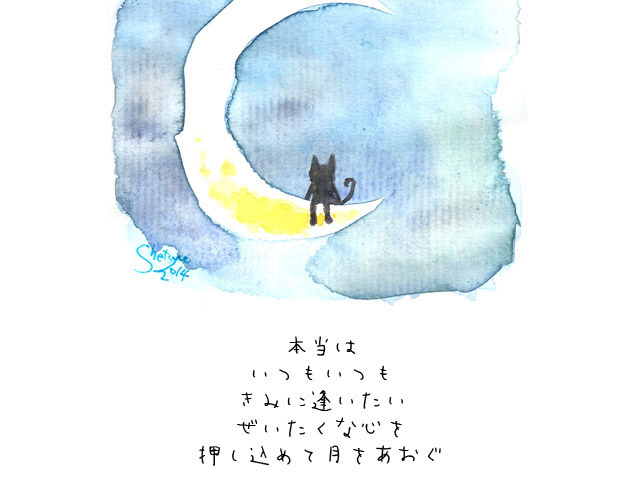 2014
本当は
いつもいつも
きみに逢いたい
ぜいたくな心を
押し込めて月をあおぐ